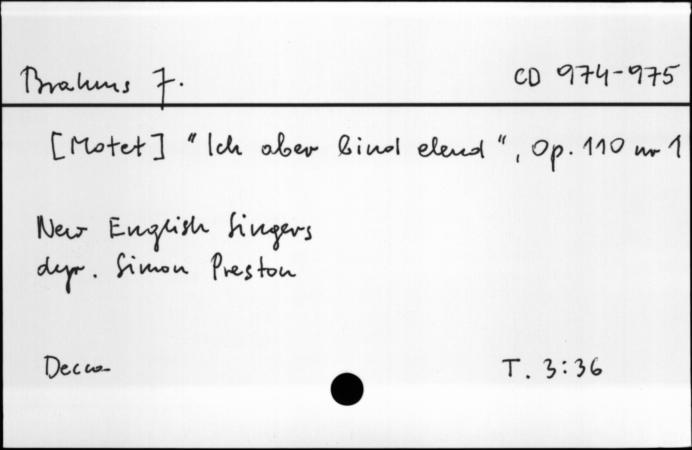 Brahms J. CD 974-975
[Motet] "Ich aber bind elend", Op. 110 nr 1
New English Singers
dyr. Simon Preston
Decca T. 3:36